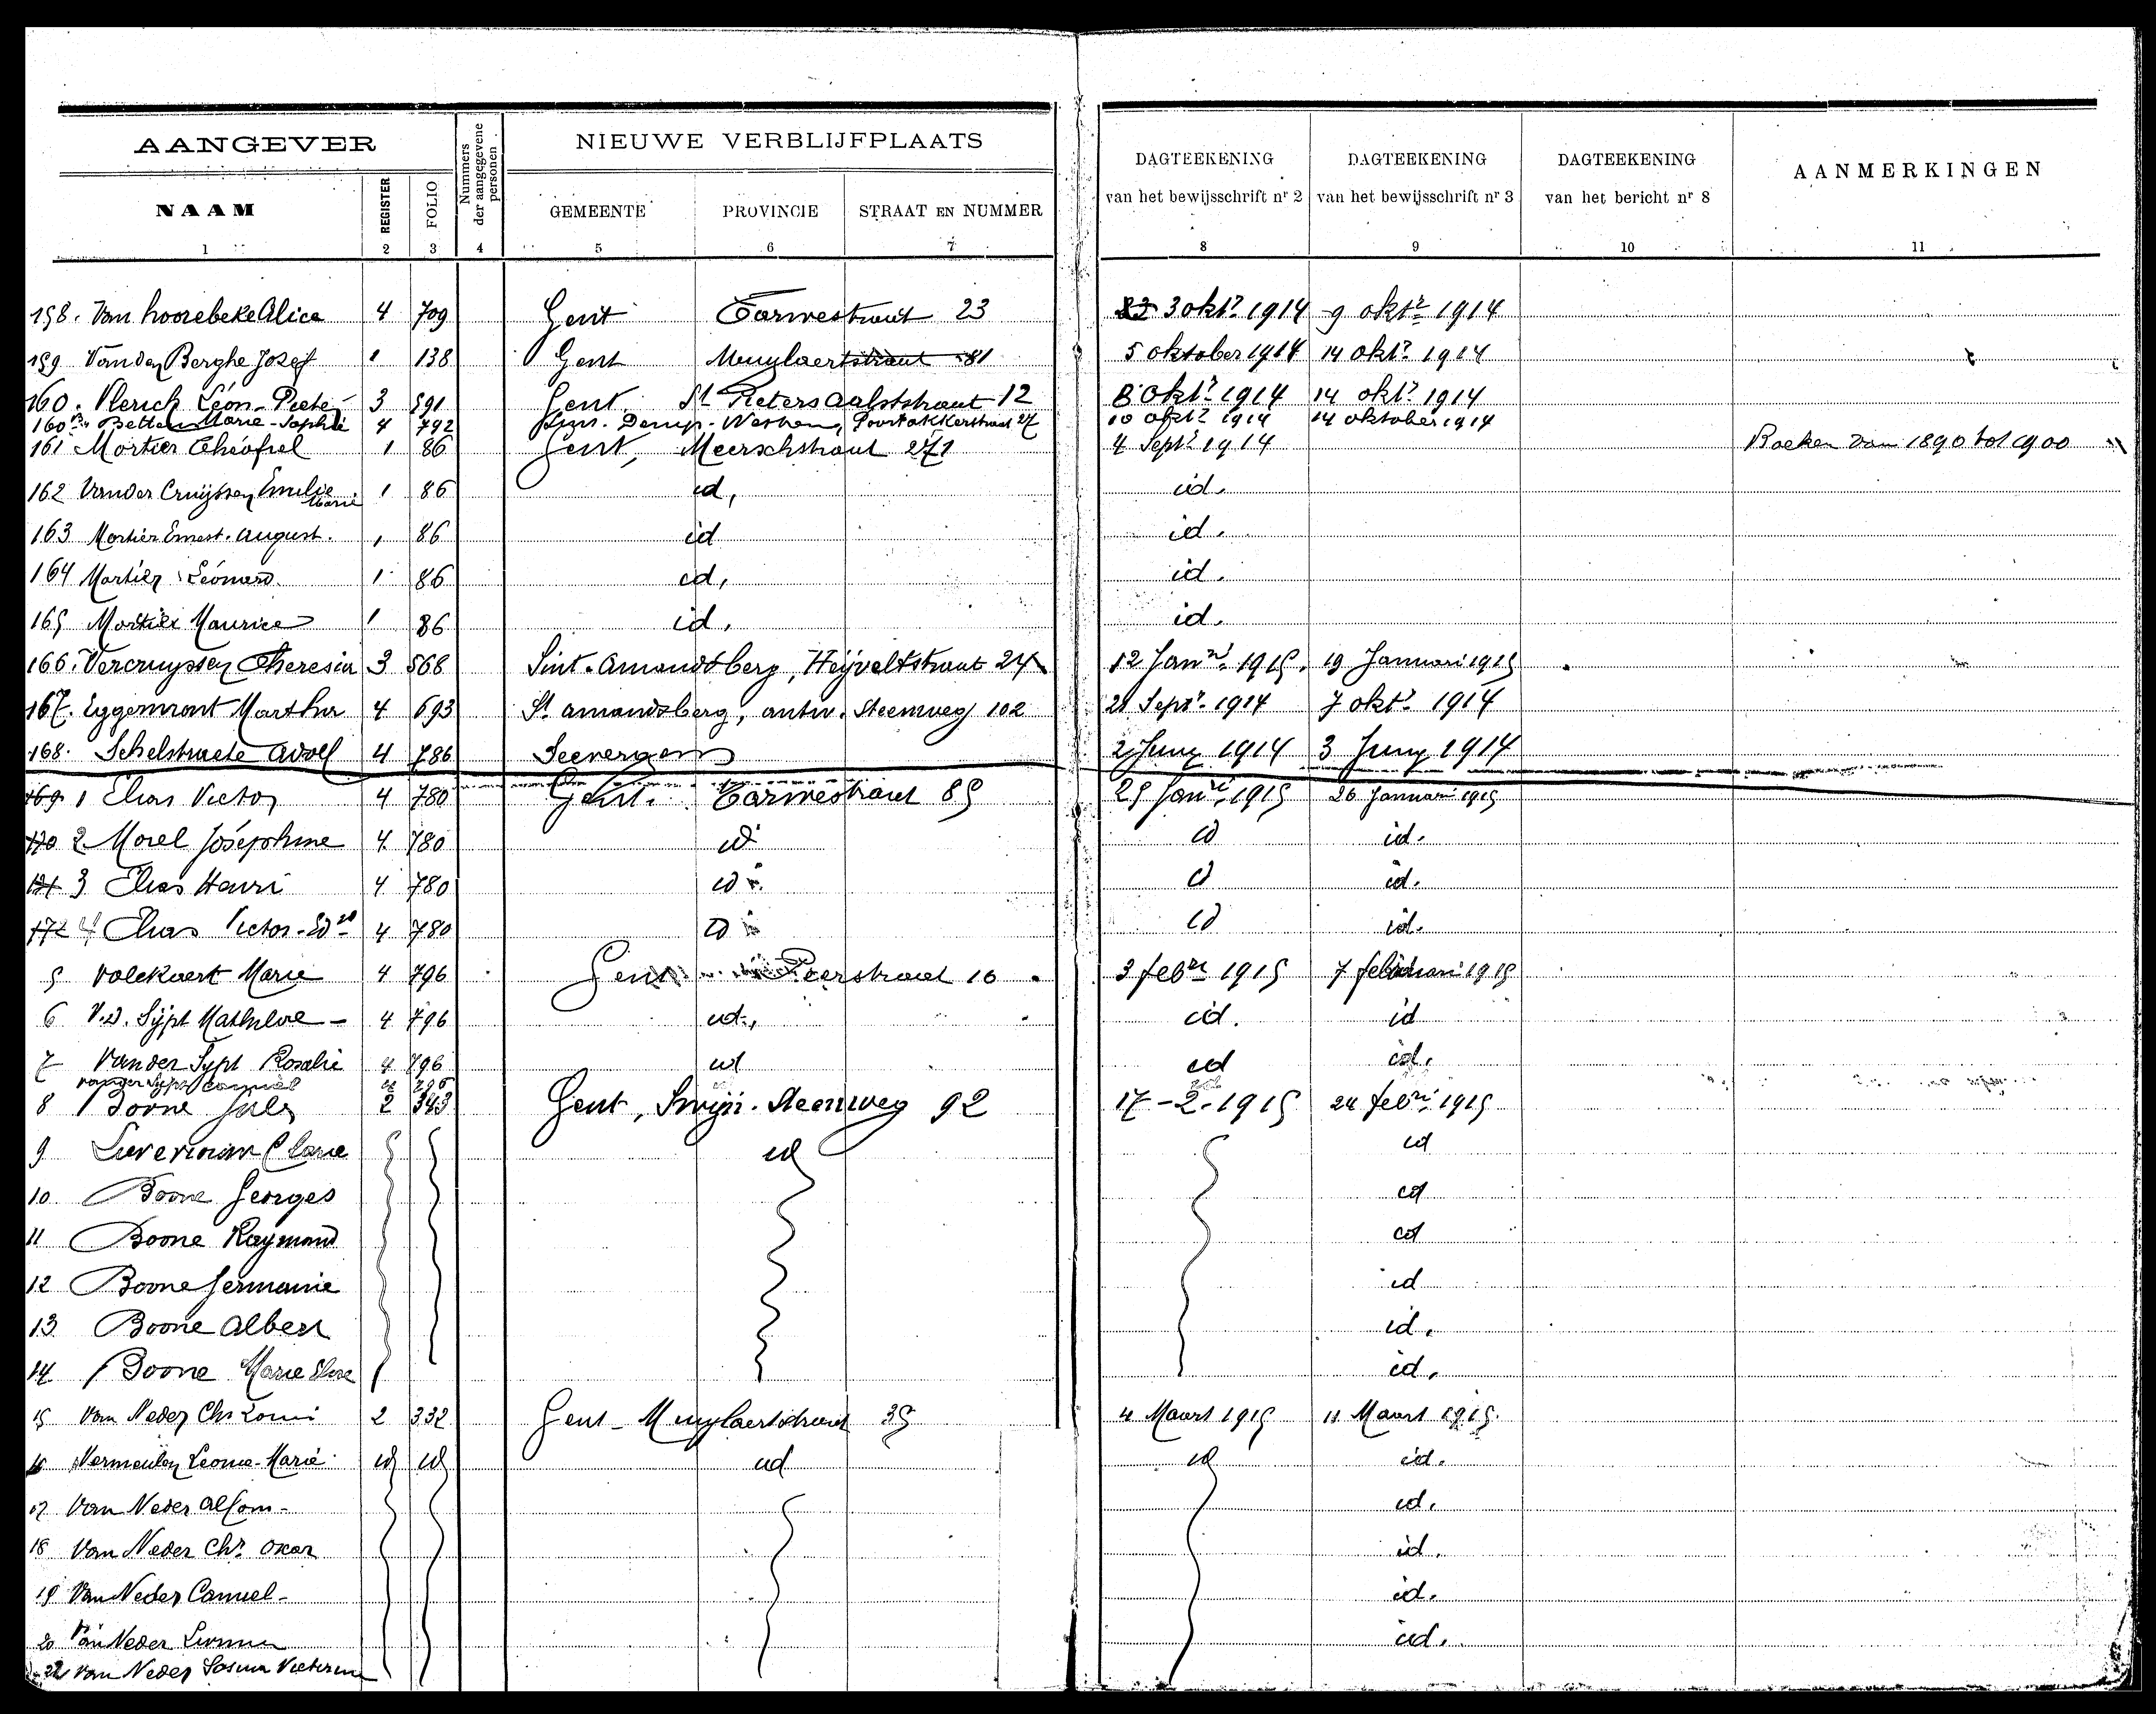 AANGEVER NIEUWE VERBLIJFPLAATS
NAAM REGISTER FOLIO Nummers der aangegevene personen GEMEENTE PROVINCIE STRAAT EN NUMMER DAGTEEKENING van het bewijsschrift nr 2 DAGTEEKENING van het bewijsschrift nr 3 DAGTEEKENING van het bericht nr 8 AANMERKINGEN
1 2 3 4 5 6 7 8 9 10 11
158. Van hoorebeke Alice 4 709 Gent Tarwestraat 23 3 okt.r 1914 9 okt.r 1914
159 Vanden Berghe Jozef 1 138 Gent Muylaertstraat 81 5 oktober 1914 14 okt.r 1914
160. Vlerick Léon-Pieter 3 591 Gent St Pieters Aalststraat 12 8 okt.r 1914 14 okt.r 1914
160 bis Marie-Sophie 4 792 10 okt.r 1914 14 oktober 1914
161 Mortier Théofiel 1 86 Gent, Meerschstraat 271 4 Sept.r 1914 Boeken van 1890 tot 1900
162 Vander Cruyssen Emilie Marie 1 86 id, id.
163 Mortier Ernest. August. 1 86 id id.
164 Mortier Léonard 1 86 id, id.
165 Mortier Maurice 1 86 id, id.
166. Vercruyssen Theresia 3 568 Sint-Amandsberg, Heyveltstraat 24 12 Jan.ri 1915. 19 Januari 1915
167. Eggermont Martha 4 693 St Amandsberg, antw. Steenweg 102 21 Sept.r 1914 7 okt.r 1914
168. Schelstraete Adolf 4 786 Seevergem 2 Juny 1914 3 Juny 1914
169 1 Elias Victor 4 780 Gent. Tarwestraat 85 25 Jan.ri 1915 26 Januari 1915
170 2 Morel Joséphine 4 780 id id id.
171 3 Elias Henri 4 780 id id id.
172 4 Elias Victor-Ed.d 4 780 id id id.
5 Volckaert Marie 4 796 Gent Peerstraat 16 3 feb.ri 1915 7 februari 1915
6 V.d. Sypt Mathilde - 4 796 id., id. id
7 Vander Sypt Rosalie 4 796 id id id.
Vander Sypt Camiel 4 796
8 Boone Jules 2 343 Gent, Swijn. Steenweg 92 17-2-1915 24 feb.ri 1915
9 Clarie id id
10 Boone Georges id
11 Boone Raymond id
12 Boone Germanie id
13 Boone Albert id.
14 Boone Marie Elise id.
15 Van Neder Chs Louis 2 332 Gent - Muylaertstraat 35 4 Maart 1915 11 Maart 1915.
16 Vermeulen Leonie-Marie id id id id id.
17 Van Neder Alfons - id.
18 Van Neder Chs Oscar id.
19 Van Neder Camiel - id.
20 Van Neder id.
Van Neder